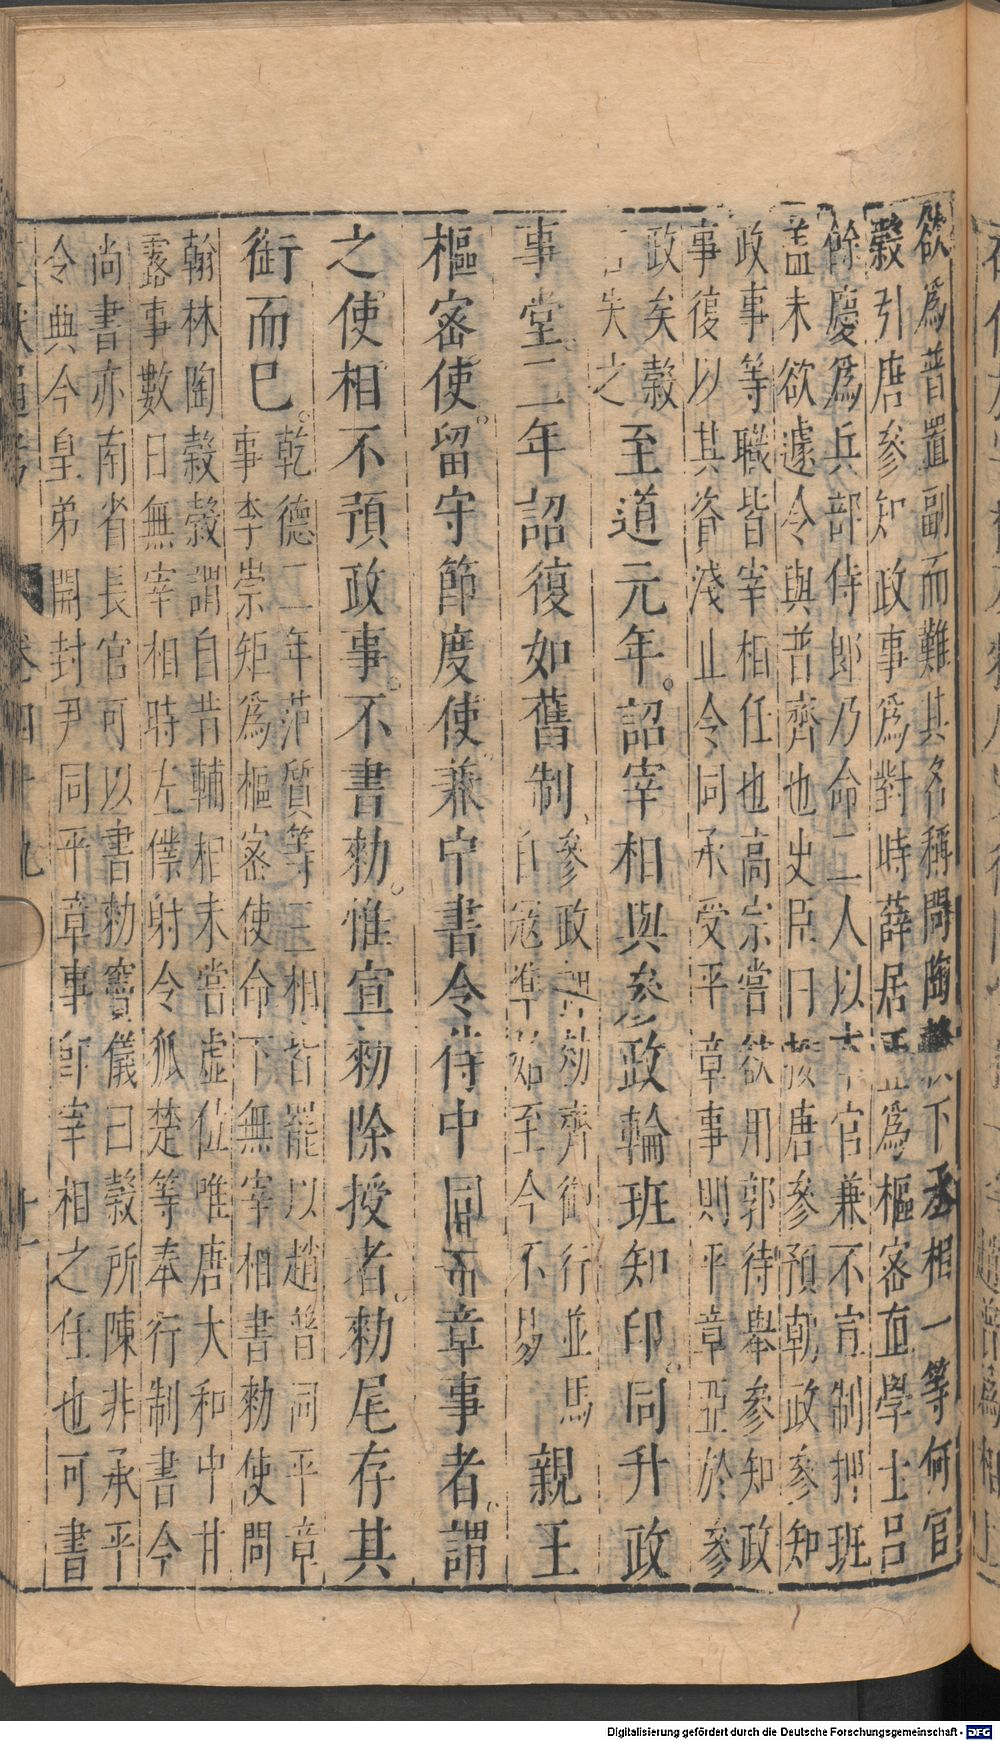 欲爲普置副而難其名稱問陶穀下丞相一等何官
穀引唐參知政事爲對時薛居正爲樞密直學士呂
餘慶爲兵部侍郎乃命二人以本官兼不宣制押班
蓋未欲遽令與普齊也史臣曰按唐參預朝政參知
政事等職皆宰相任也高宗嘗欲用郭待舉參知政
事復以其資淺止令同承受平章事則平章亞於參
政矣穀
失之
至道元年。詔宰相與參政輪班知印。同升政
事堂。二年詔復如舊制、
參政
勑齊御行並馬
自寇準始至今不易
親王
樞密使。留守節度使。兼中書令侍中同平章事者。謂
之使相不預政事。不書勑。惟宣勑除授者。勑尾存其
銜而已。
乾德二年范質等三相皆罷以趙普同平章
事李崇矩爲樞密使命下無宰相書勑使問
翰林陶穀穀謂自昔輔相未嘗虛位唯唐大和中甘
露事數日無宰相時左僕射令狐楚等奉行制書今
尚書亦南省長官可以書勑竇儀曰穀所陳非承平
令典今皇弟開封尹同平章事卽宰相之任也可書
卷四十九
十一
Digitalisierung gefördert durch die Deutsche Forschungsgemeinschaft - DFG